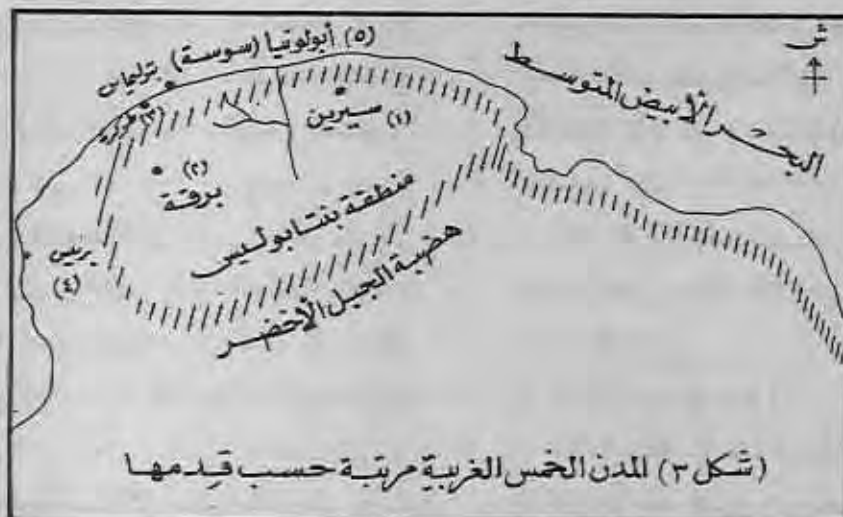 ش
البحر الأبيض المتوسط
(٥) أبولونيا (سوسة) بتوليمايس
(٣) طوكرة
(١) سيرين
(٢) برقة
منطقة بنتابوليس
هضبة الجبل الأخضر
برنيس
(٤)
(شكل ٣) المدن الخمس الغربية مرتبة حسب قِدمها